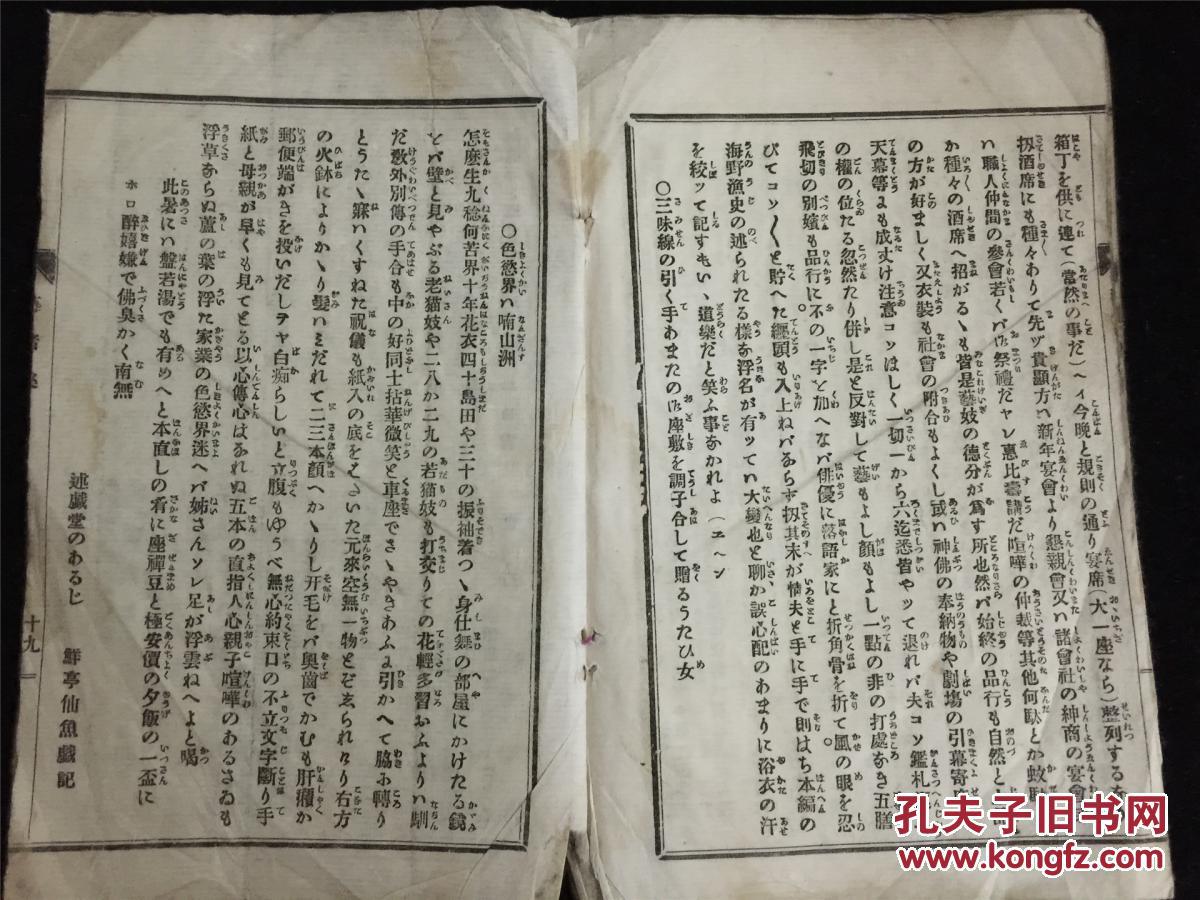 箱丁を供に連て(當然の事だ)ヘイ今晩と規則の通り宴席(大一座なら)整列する
扨酒席にも種々ありて先ヅ貴顯方ハ新年宴會より懇親會又ハ諸會社の紳商の宴會
ハ職人仲間の參會若くバ御祭禮だヤレ惠比壽講だ喧嘩の仲裁等其他何駄とか蚊
か種々の酒席へ招がるゝも皆是藝妓の德分が爲す所也然バ始終の品行も自然と
の方が好ましく又衣裝も社會の附合もよくし或ハ神佛の奉納物や劇塲の引幕寄
天幕等にも成丈け注意コソはしく一切一から六迄悉皆やッて退れバ夫コソ鑑札
の權の位たる忽然たり併し是と反對して藝もよし顔もよし一點の非の打處なき五膳
飛切の別嬪も品行に不の一字を加へなバ俳優に落語家にと折角骨を折て風の眼を忍
びてコソ〱と貯へた纒頭も入上ねバならず扨其末が情夫と手に手で則はち本編の
海野漁史の述られたる樣な浮名が有ッてハ大變也と聊か誤心配のあまりに浴衣の汗
を絞ッて記すもいゝ道樂だと笑ふ事なかれよ(エヘン
〇三味線の引く手あまたの御座敷を調子合して贈るうたひ女
〇色慾界ハ喃山洲
怎麼生九稔何苦界十年花衣四十島田や三十の振袖着つゝ身仕舞の部屋にかけたる鏡
をバ壁と見やぶる老猫妓や二八か二九の若猫妓も打交りての花輕多習おふよりハ馴
だ敎外別傳の手合も中の好同士拈華微笑と車座でさゝやきあふお引かへて脇お轉り
とうたゝ寐ハくすねた祝儀も紙入の底をはたいた元來空無一物とぞゑられけり右方
の火鉢によりかゝり髮ハみだれて二三本顔へかゝりし后毛をバ奥齒でかむも肝癪か
郵便端がきを投いだしテヤ白痴らしいと立腹もゆうべ無心約束口の不立文字斷り手
紙と母親が早くも見てとる以心傳心はなれぬ五本の直指人心親子喧嘩のあるさゐも
浮草ならぬ蘆の葉の浮た家業の色慾界迷へバ姉さんソレ足が浮雲ねへよと喝
此暑にハ盤若湯でも有めへと本直しの肴に座禪豆と極安價の夕飯の一盃に
ホロ醉嬉嫌で佛臭かく南無
述戯堂のあるじ 鮮亭仙魚戯記
十九
孔夫子旧书网
www.kongfz.com